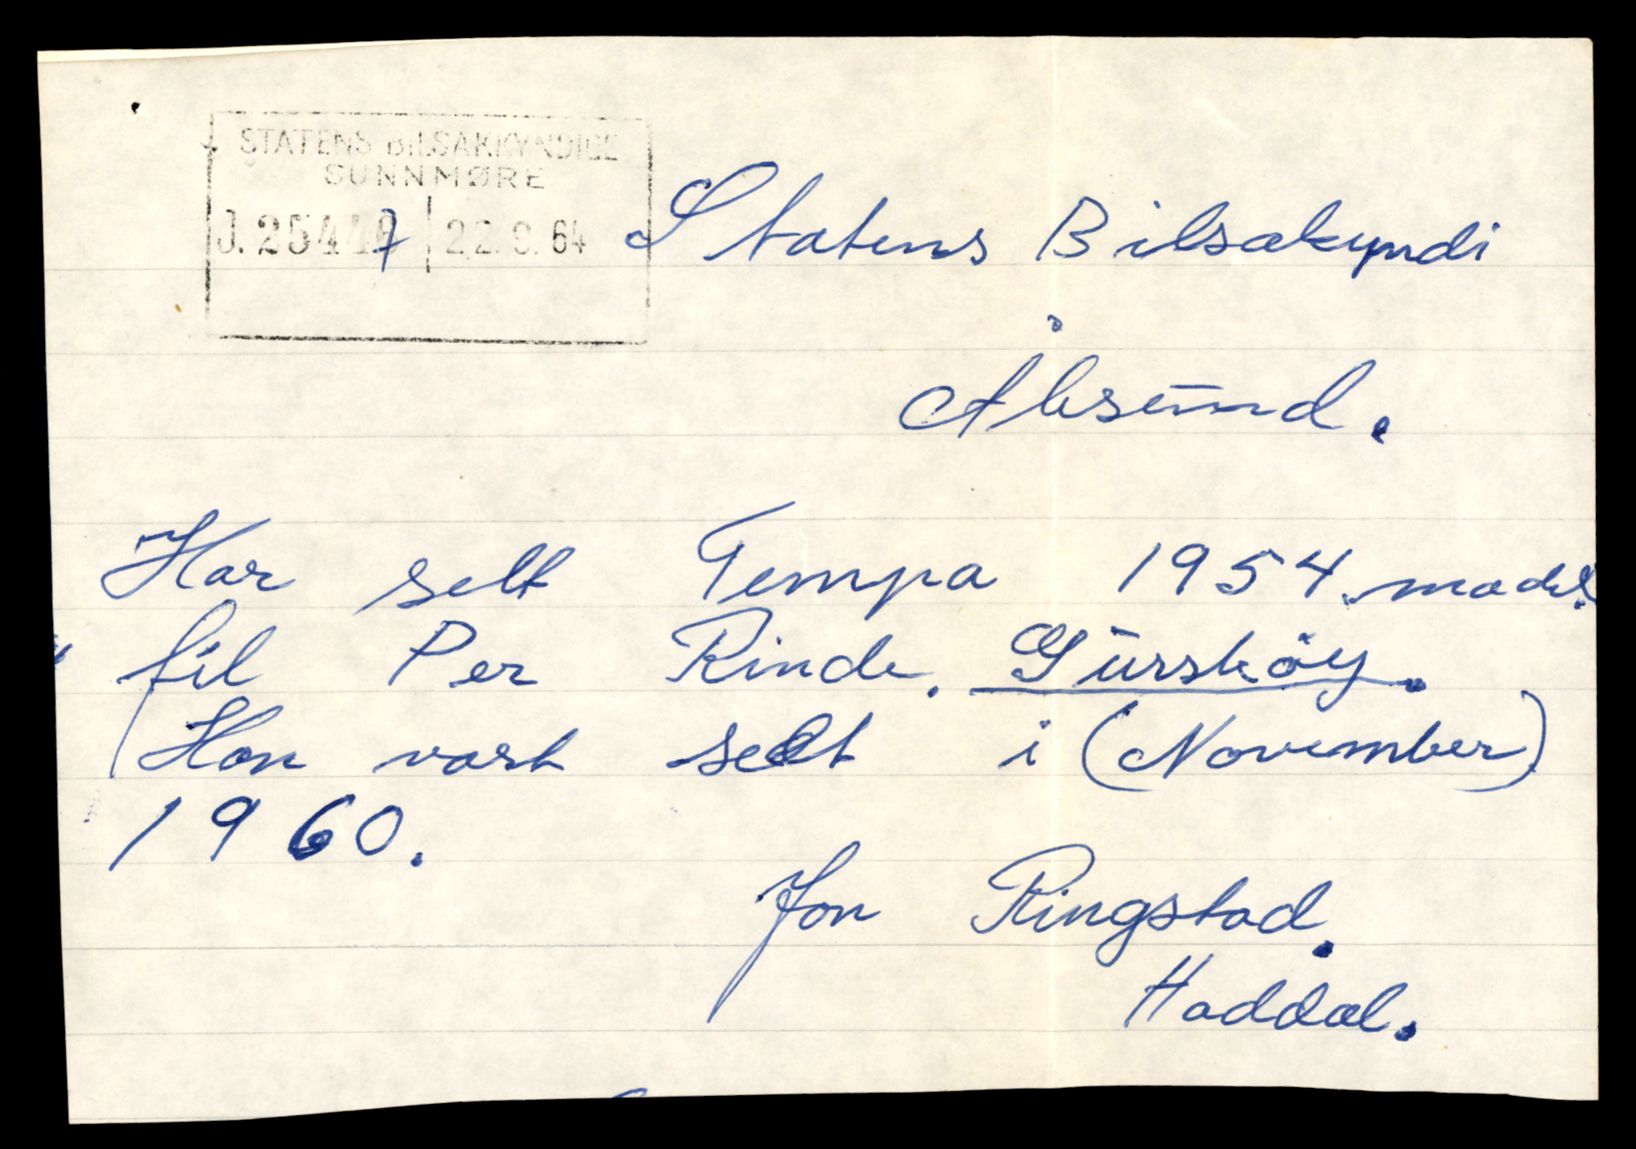 STATENS BILSAKKYNDIGE
SUNNMØRE
22.9.64
Statens Bilsakyndi
Ålesund.
Har selt Tempa 1954. model
til Per Rinde. Gurskøy.
Hon vart selt i (November)
1960.
Jon Ringstad.
Haddal.